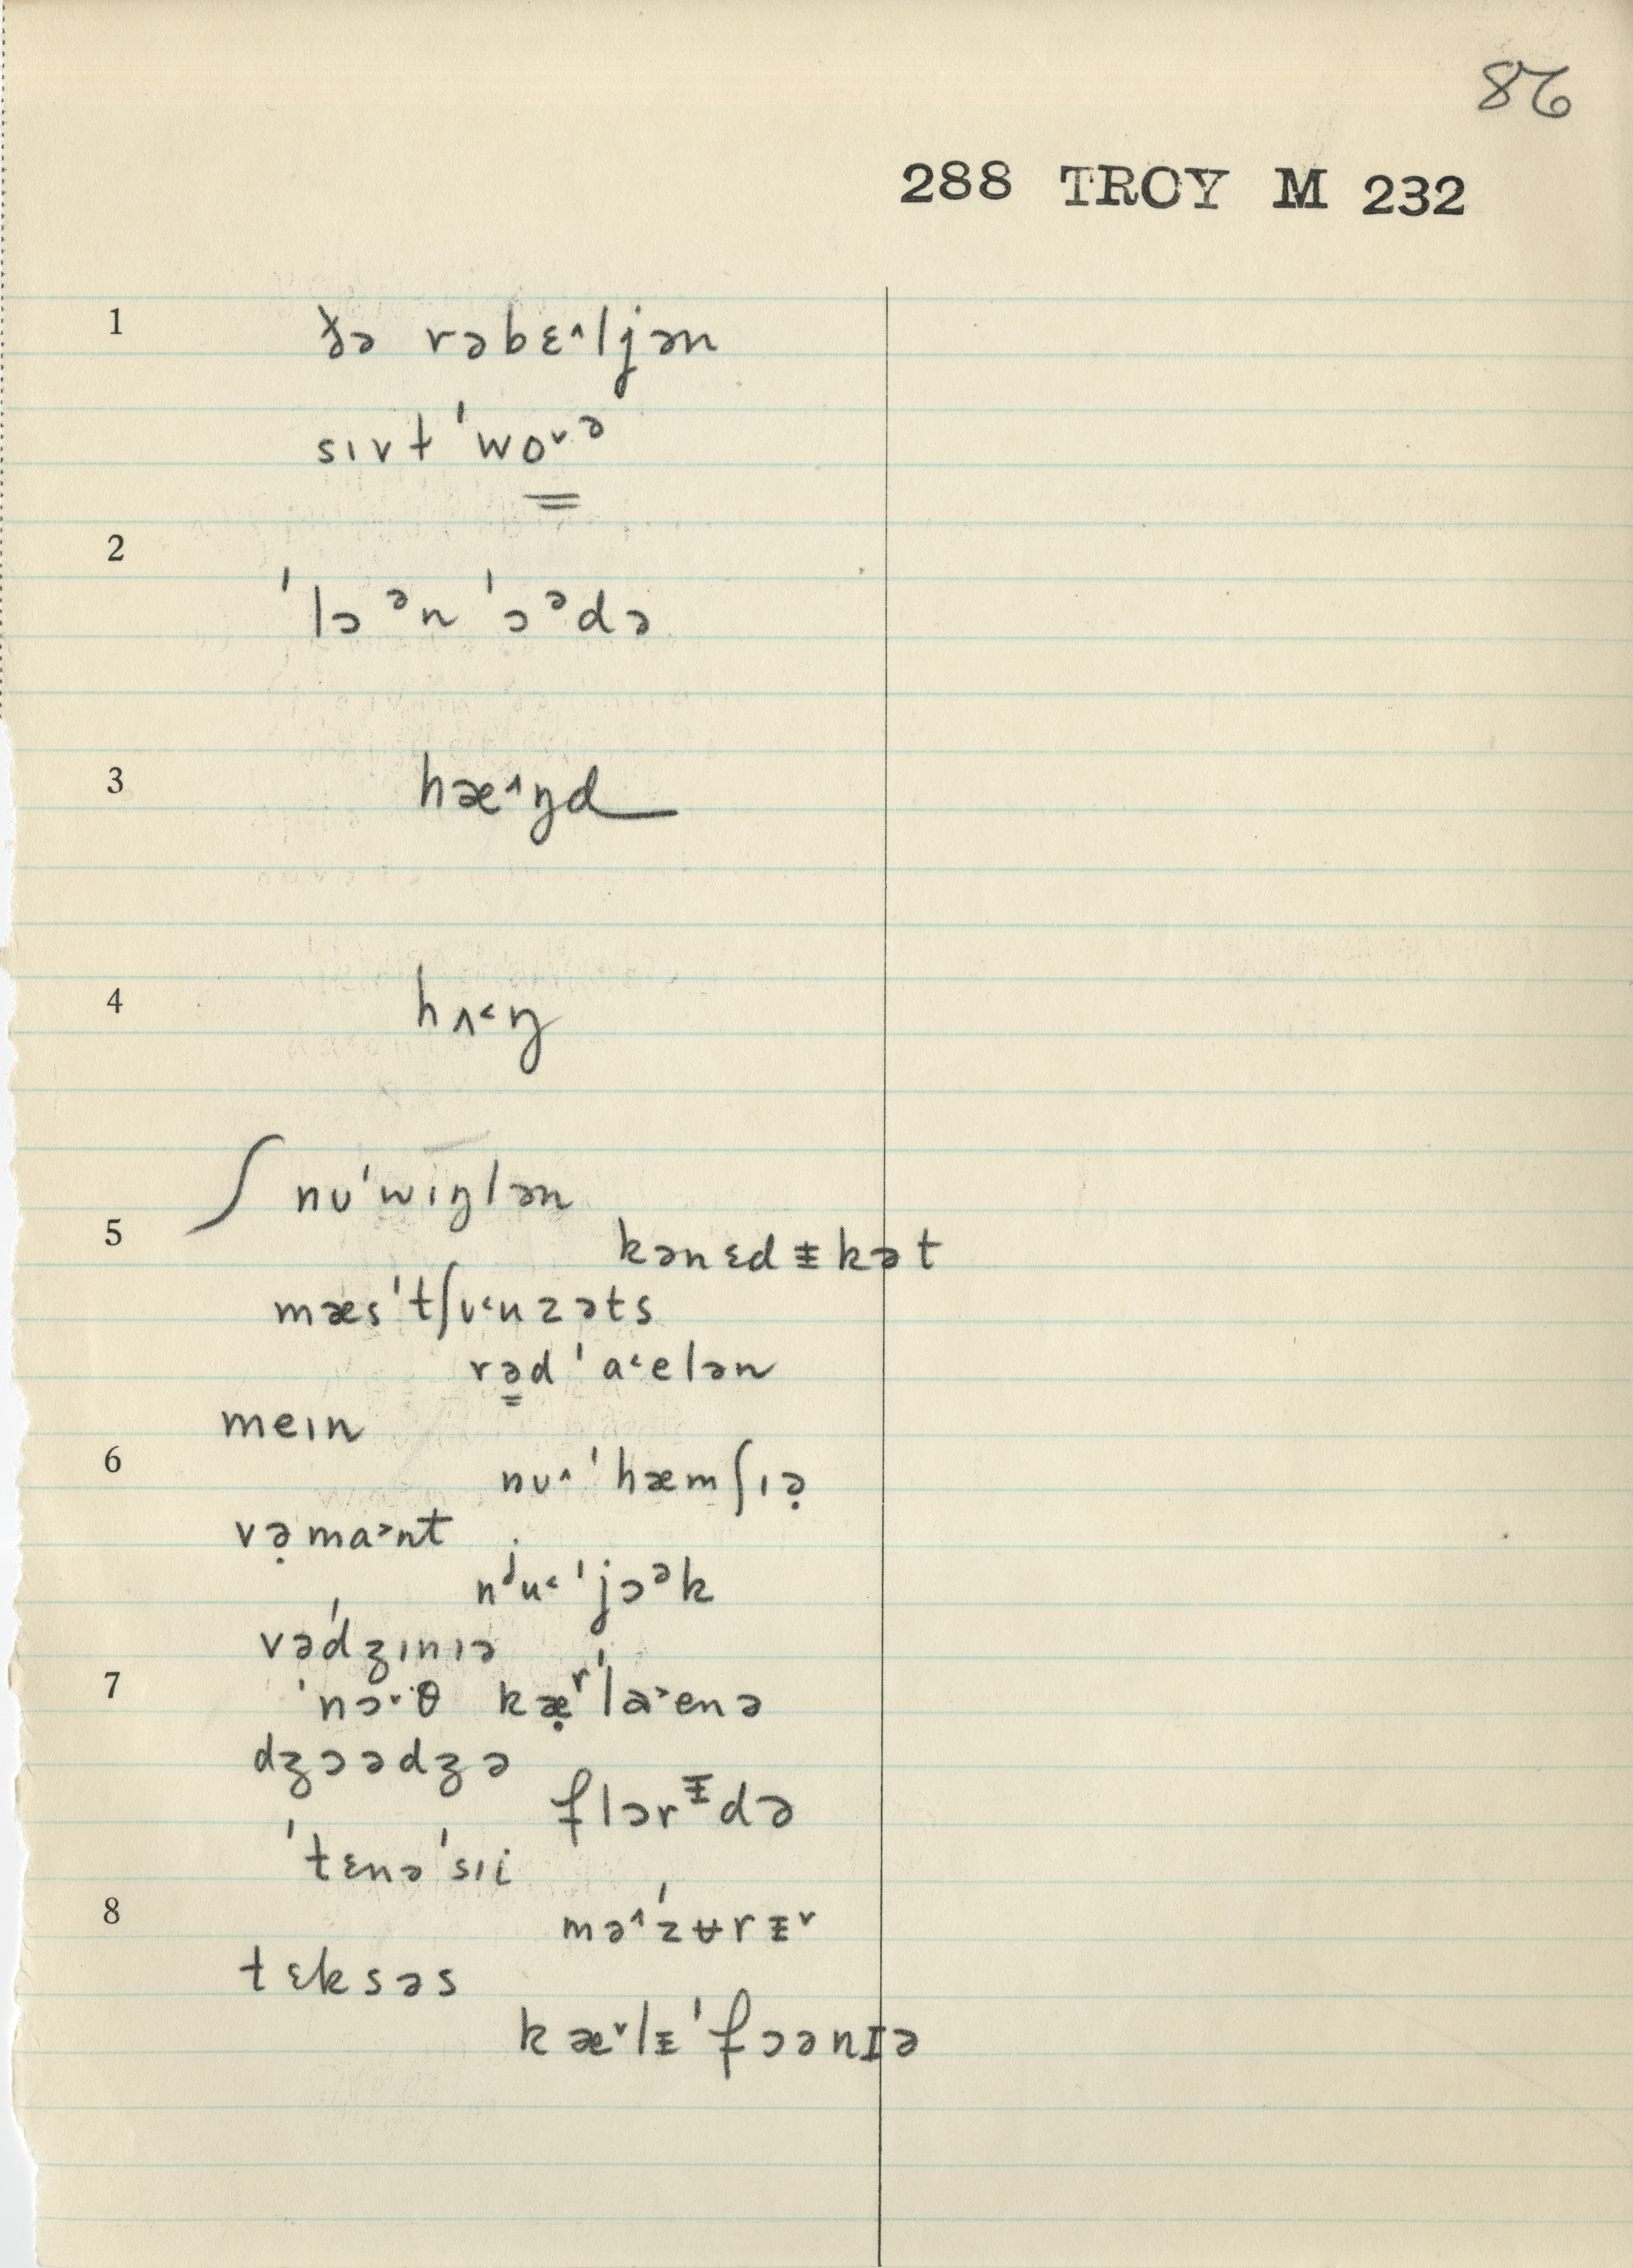 86
288 TROY M 232
1 ðə rəbɛ˄ljən
sɪvt ˈwo˅ᵊ
2
ˈlɔᵊn ˈɔᵊdə
3 hæ˄ŋd
4 hʌ˂ŋ
ʃ nʊˈwɪŋlən
5 kənɛdᵻkət
mæsˈtʃu˂uzəts
rəd ˈa˂elən
meɪn
6 nʊ˄ ˈhæmʃɪə̣
və̣ma˃nt
nʲu˂ ˈjɔᵊk
vəˈdʒɪnɪə
7 ˈnɔ˅θ kæ̣ʳˈla˃enə
dʒɔədʒə
flɔrᵻdə
ˈtɛnəˈsɪi
8 mə˄ˈzʉrᵻ˅
tɛksəs
kæ˅lᵻˈfɔənɪə